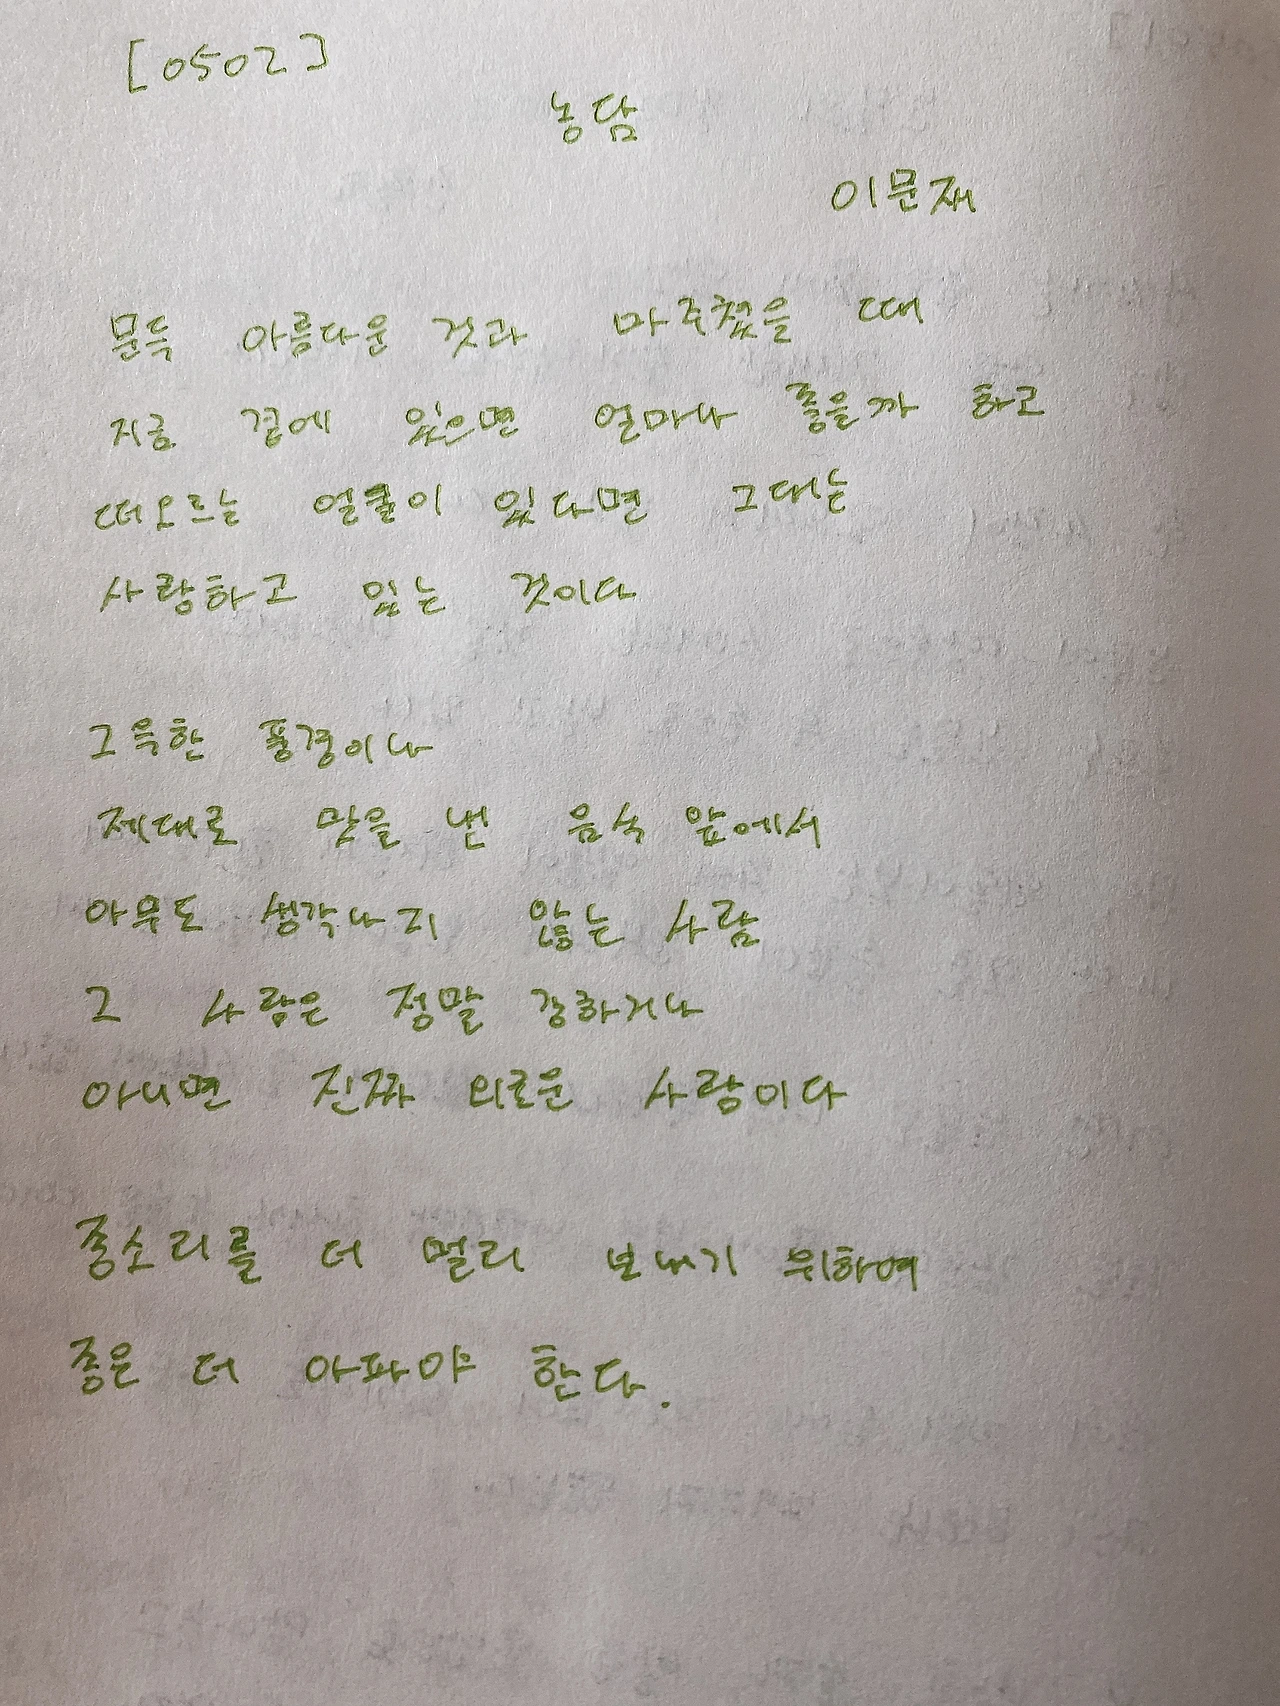 [0502]
농담
이문재
문득 아름다운 것과 마주쳤을 때
지금 곁에 있으면 얼마나 좋을까 하고
떠오르는 얼굴이 있다면 그대는
사랑하고 있는 것이다
그윽한 풍경이나
제대로 맛을 낸 음식 앞에서
아무도 생각나지 않는 사람
그 사람은 정말 강하거나
아니면 진짜 외로운 사람이다
종소리를 더 멀리 보내기 위하여
종은 더 아파야 한다.